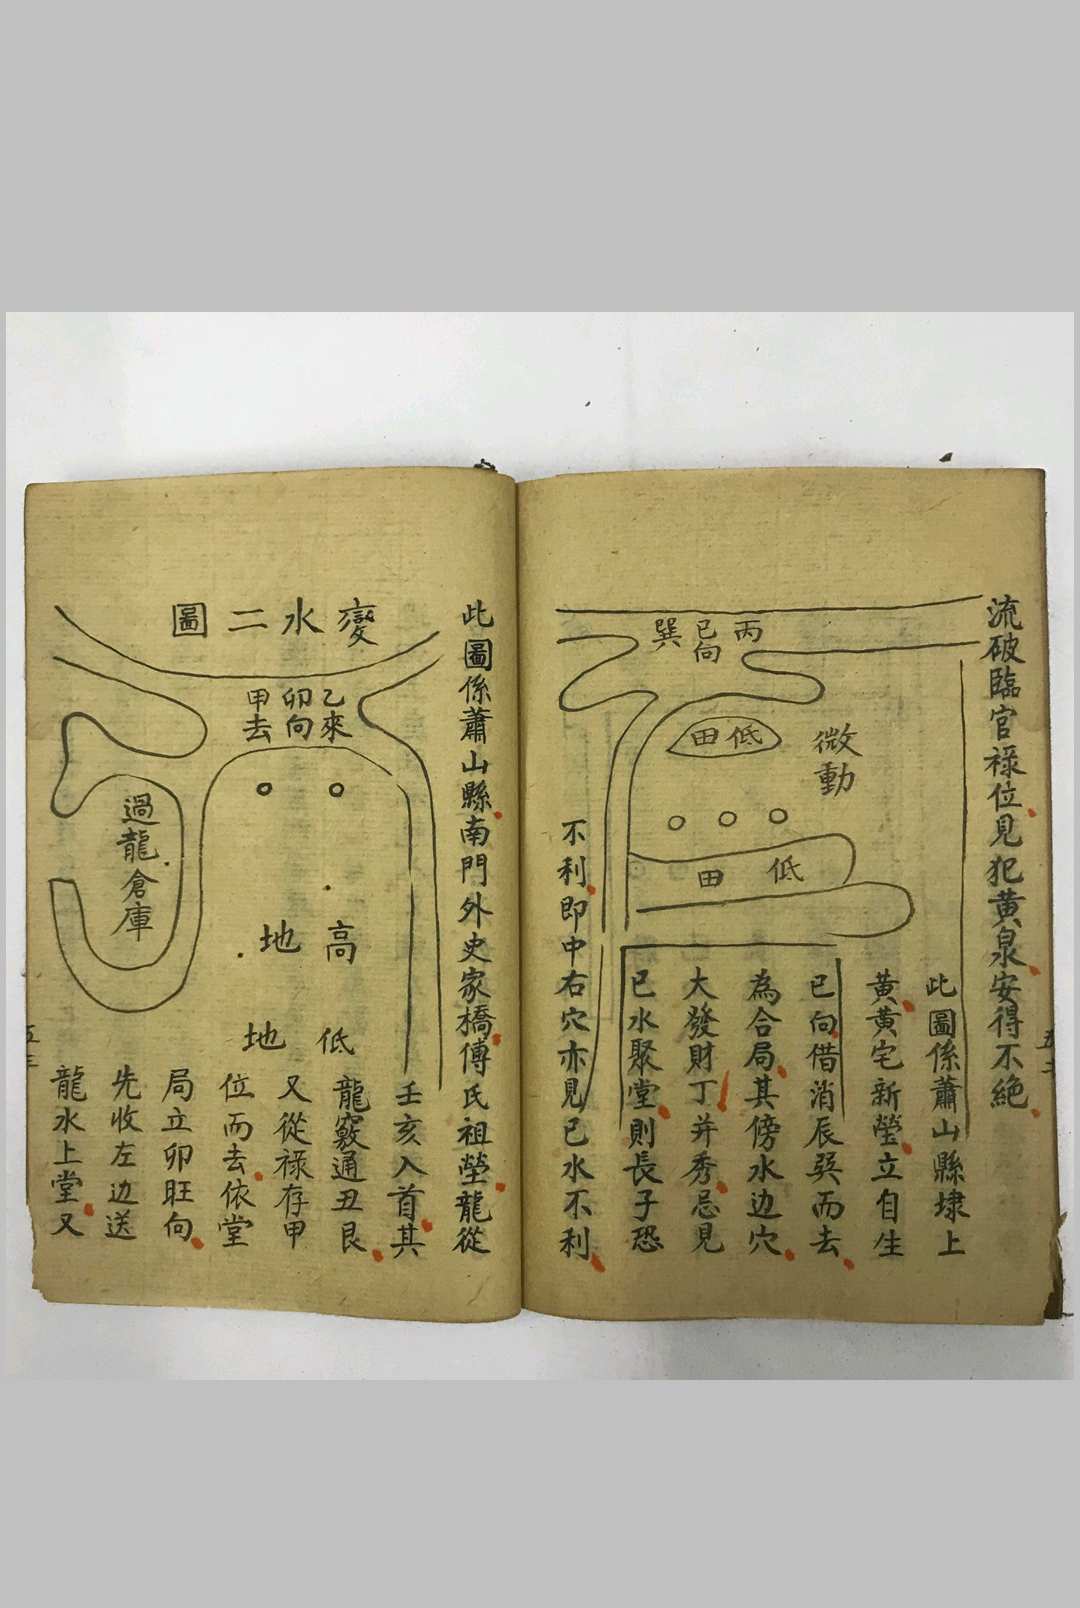 流破臨官祿位見犯黃泉安得不絕
此圖係蕭山縣埭上
黃黃宅新瑩立自生
巳向借消辰巽而去
為合局其傍水边穴
大發財丁并秀忌見
巳水聚堂則長子恐
不利即中右穴亦見巳水不利
丙
巳向
巽
低田
微動
低田
五二
此圖係蕭山縣南門外史家橋傅氏祖塋龍從
壬亥入首其
龍竅通丑艮
又從祿存甲
位而去依堂
局立卯旺向
先收左边送
龍水上堂又
變水二圖
乙來
卯向
甲去
過龍倉庫
高地
低地
五三